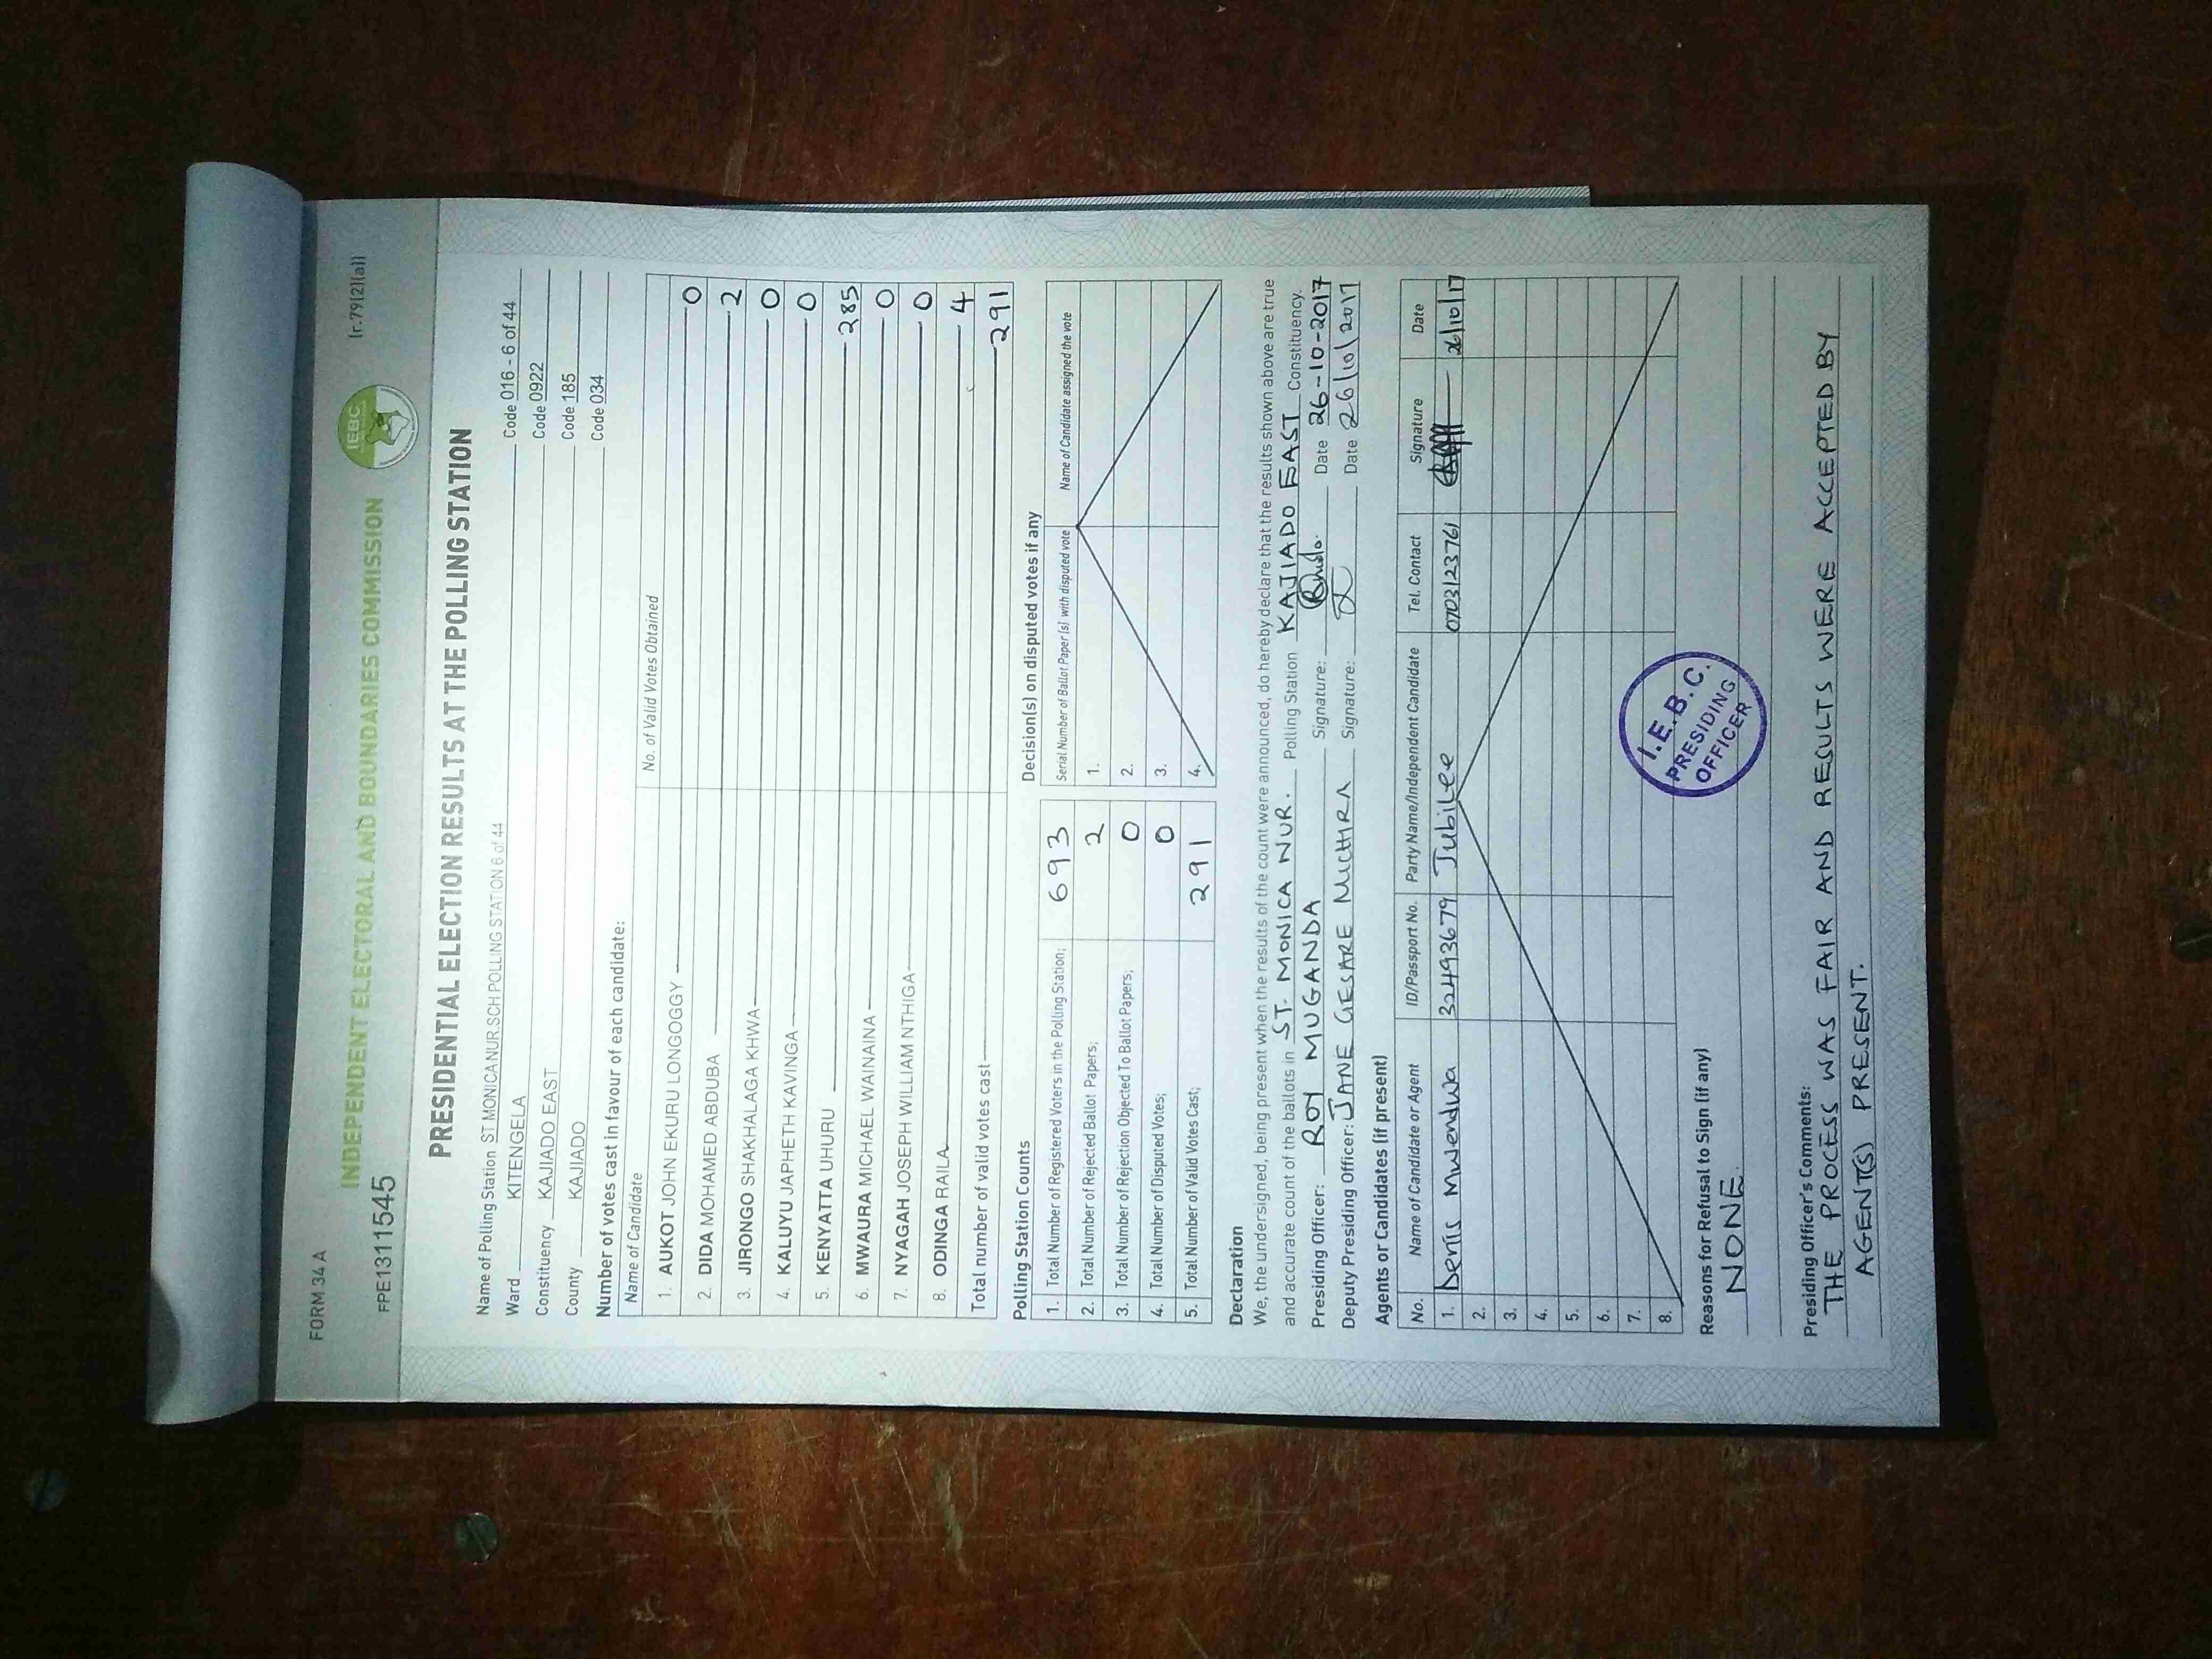 FORM 34 A
INDEPENDENT ELECTORAL AND BOUNDARIES COMMISSION
IEBC
(r.79(2)(a))
FPE1311545
PRESIDENTIAL ELECTION RESULTS AT THE POLLING STATION
Name of Polling Station ST MONICA NUR.SCH POLLING STATION 6 of 44 Code 016 - 6 of 44
Ward KITENGELA Code 0922
Constituency KAJIADO EAST Code 185
County KAJIADO Code 034
Number of votes cast in favour of each candidate:
Name of Candidate No. of Valid Votes Obtained
1. AUKOT JOHN EKURU LONGOGGY 0
2. DIDA MOHAMED ABDUBA 2
3. JIRONGO SHAKHALAGA KHWA 0
4. KALUYU JAPHETH KAVINGA 0
5. KENYATTA UHURU 285
6. MWAURA MICHAEL WAINAINA 0
7. NYAGAH JOSEPH WILLIAM NTHIGA 0
8. ODINGA RAILA 4
Total number of valid votes cast 291
Polling Station Counts
1. Total Number of Registered Voters in the Polling Station; 693
2. Total Number of Rejected Ballot Papers; 2
3. Total Number of Rejection Objected To Ballot Papers; 0
4. Total Number of Disputed Votes; 0
5. Total Number of Valid Votes Cast; 291
Decision(s) on disputed votes if any
Serial Number of Ballot Paper(s) with disputed vote Name of Candidate assigned the vote
1.
2.
3.
4.
Declaration
We, the undersigned, being present when the results of the count were announced, do hereby declare that the results shown above are true
and accurate count of the ballots in ST. MONICA NUR. Polling Station KAJIADO EAST Constituency.
Presiding Officer: ROY MUGANDA Signature: Date 26-10-2017
Deputy Presiding Officer: JANE GESARE MUCHRA Signature: Date 26/10/2017
Agents or Candidates (if present)
No. Name of Candidate or Agent ID/Passport No. Party Name/Independent Candidate Tel. Contact Signature Date
1. Denis Mwendwa 32493679 Jubilee 0703123761 26/10/17
2.
3.
4.
5.
6.
7.
8.
I.E.B.C.
PRESIDING
OFFICER
Reasons for Refusal to Sign (if any)
NONE.
Presiding Officer's Comments:
THE PROCESS WAS FAIR AND RESULTS WERE ACCEPTED BY
AGENT(S) PRESENT.